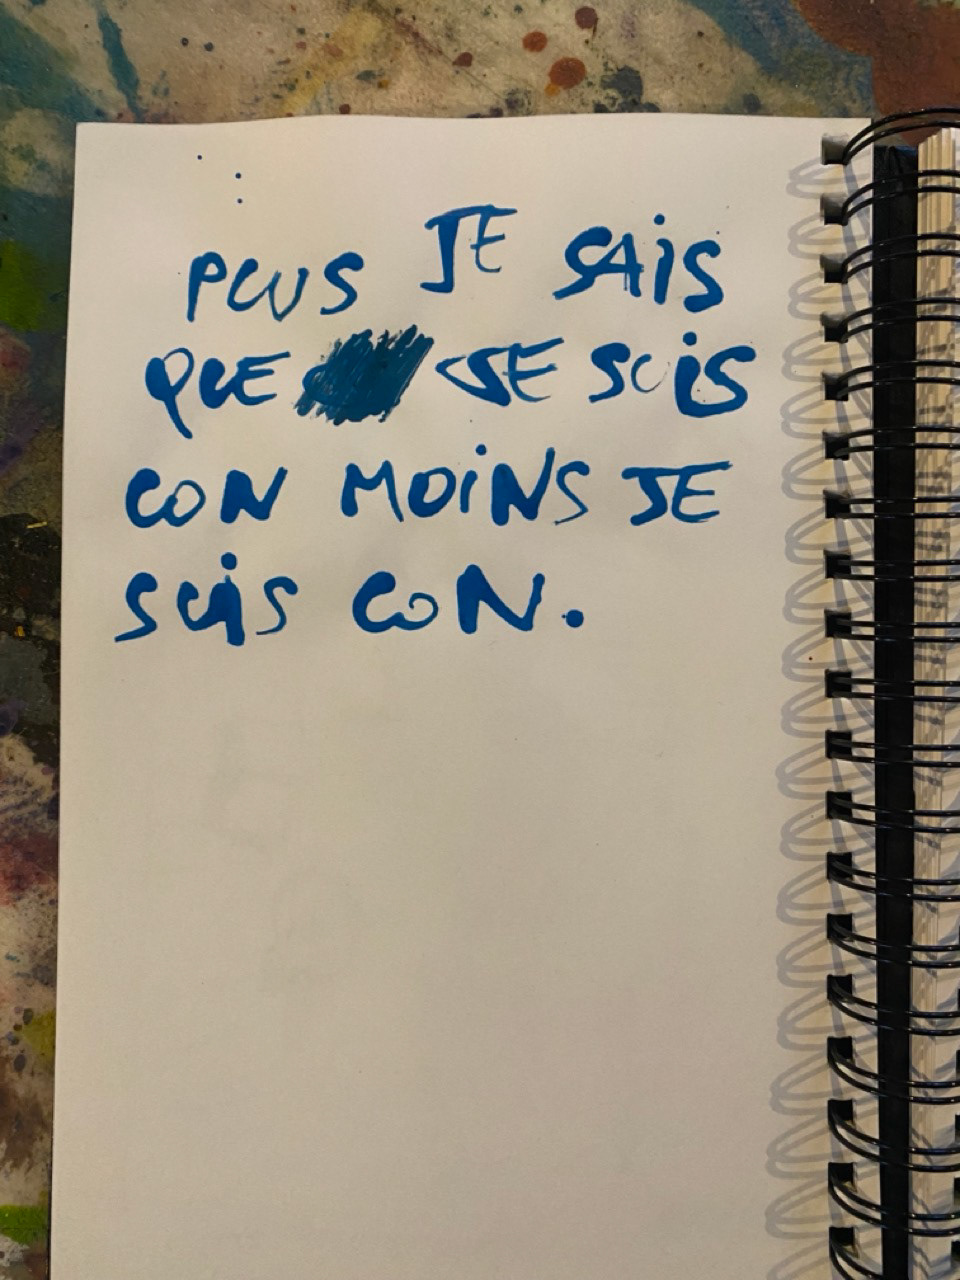 PLUS JE SAIS
QUE JE SUIS
CON MOINS JE
SUIS CON.